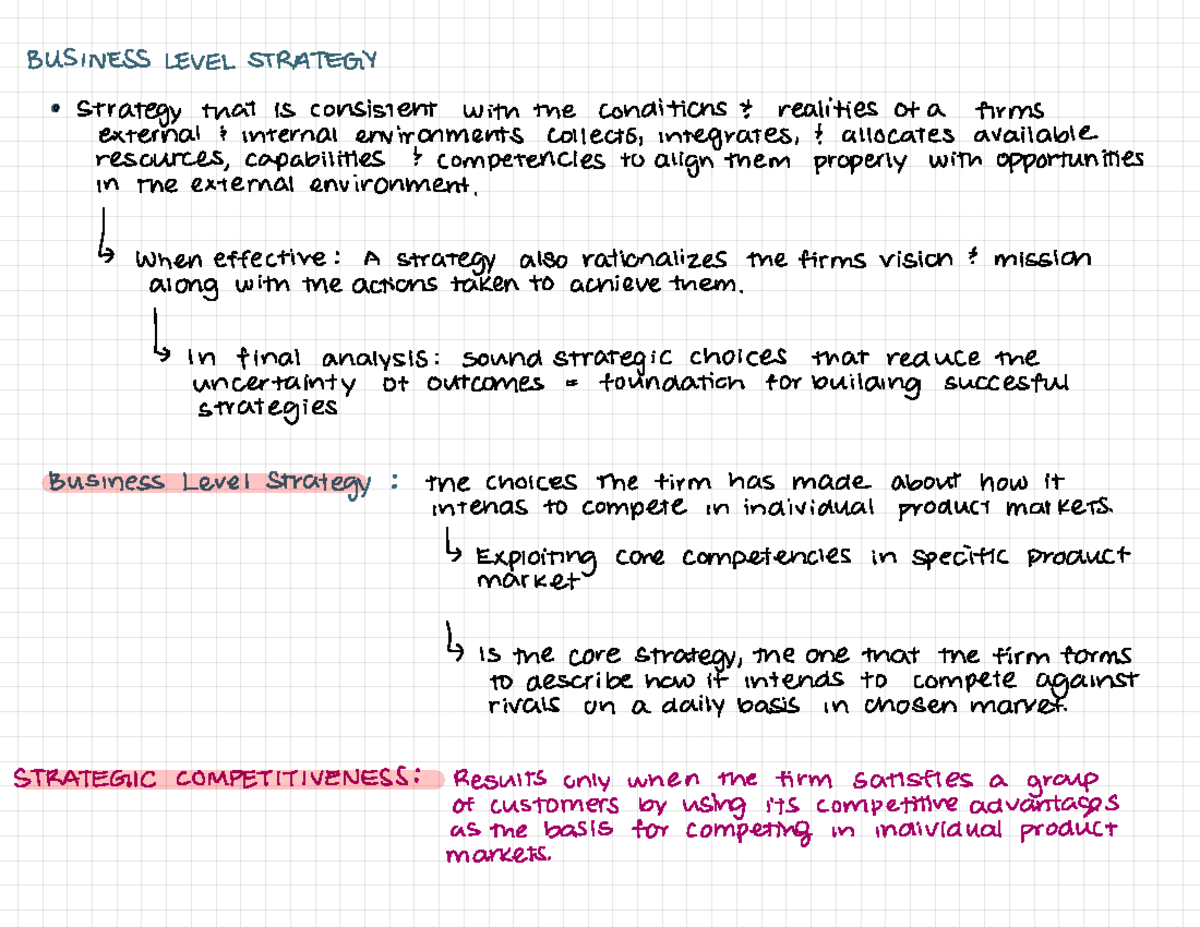 BUSINESS LEVEL STRATEGY
• Strategy that is consistent with the conditions & realities of a firms
external & internal environments collects, integrates, & allocates available
resources, capabilities & competencies to align them properly with opportunities
in the external environment.
↳ When effective: A strategy also rationalizes the firms vision & mission
along with the actions taken to achieve them.
↳ In final analysis: sound strategic choices that reduce the
uncertainty of outcomes = foundation for building succesful
strategies
Business Level Strategy : the choices the firm has made about how it
intends to compete in individual product markets.
↳ Exploiting core competencies in specific product
market
↳ is the core strategy, the one that the firm forms
to describe how it intends to compete against
rivals on a daily basis in chosen market.
STRATEGIC COMPETITIVENESS: Results only when the firm satisfies a group
of customers by using its competitive advantages
as the basis for competing in individual product
markets.